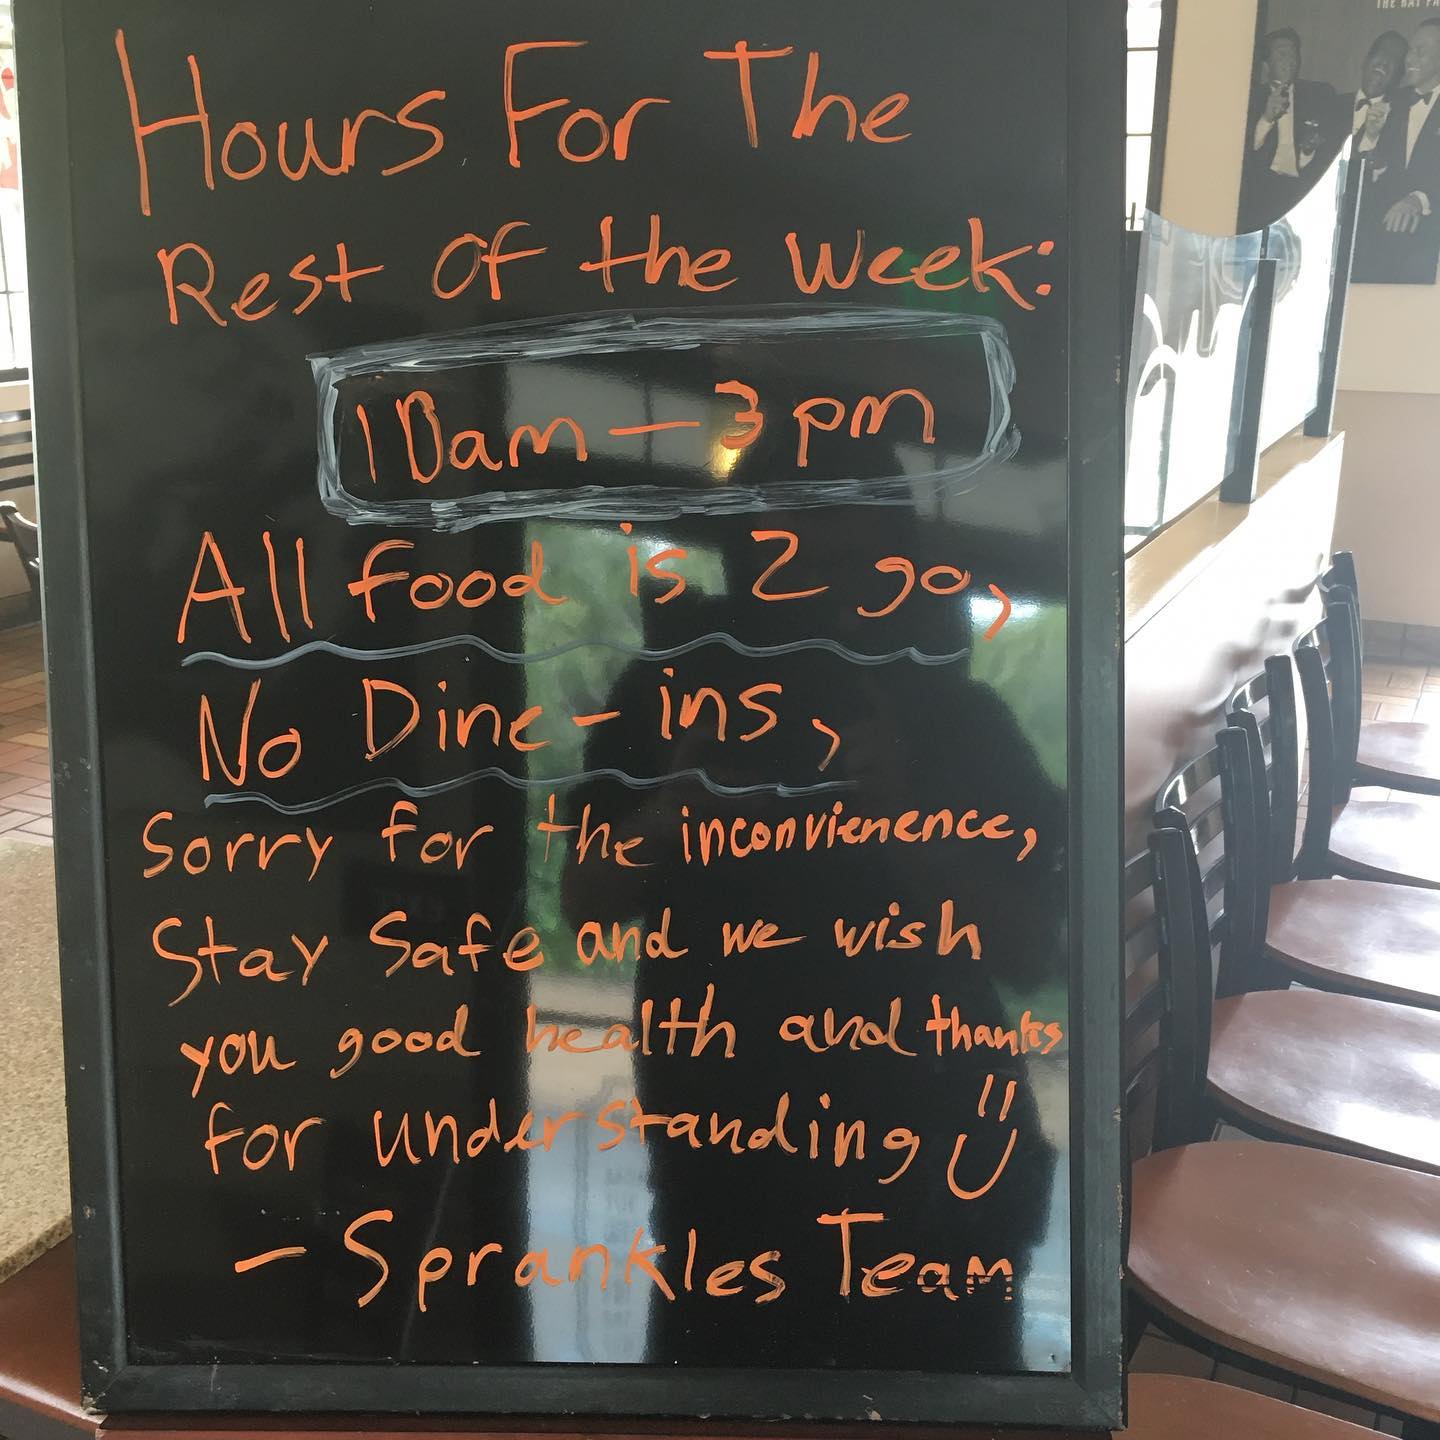 Hours For The
Rest of the week:
10am - 3pm
All food is 2 go,
No Dine-ins,
Sorry for the inconvienence,
Stay safe and we wish
you good health and thanks
for understanding =)
- Sprankles Team
THE RAT PA